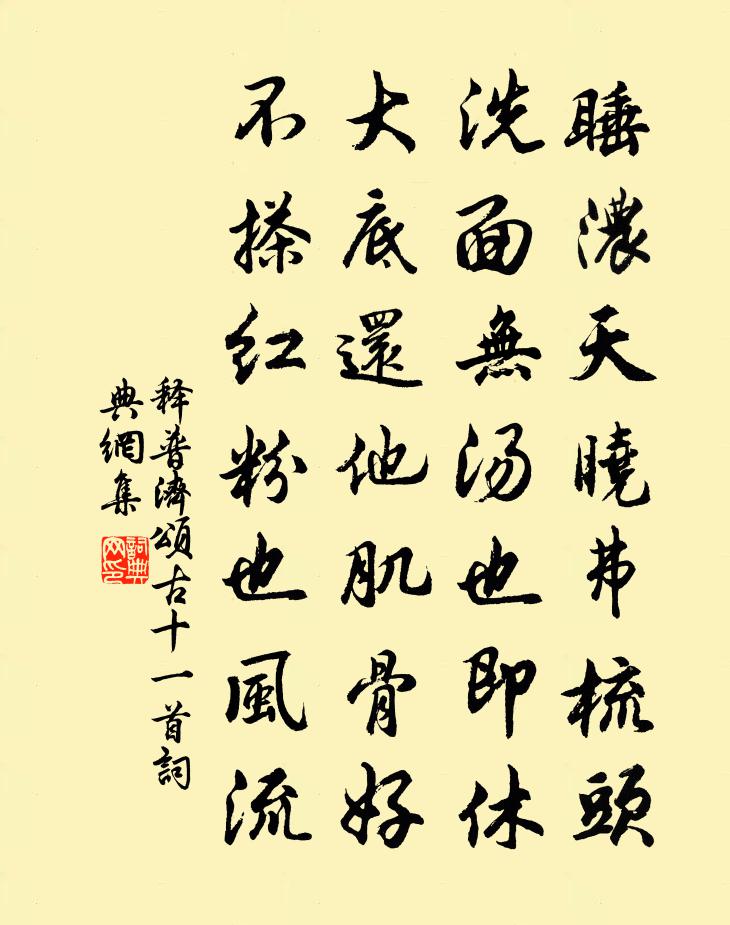 睡濃天曉弗梳頭
洗面無湯也即休
大底還他肌骨好
不搽红粉也風流
释普濟頌古十一首詞
典網集
詞典
网印